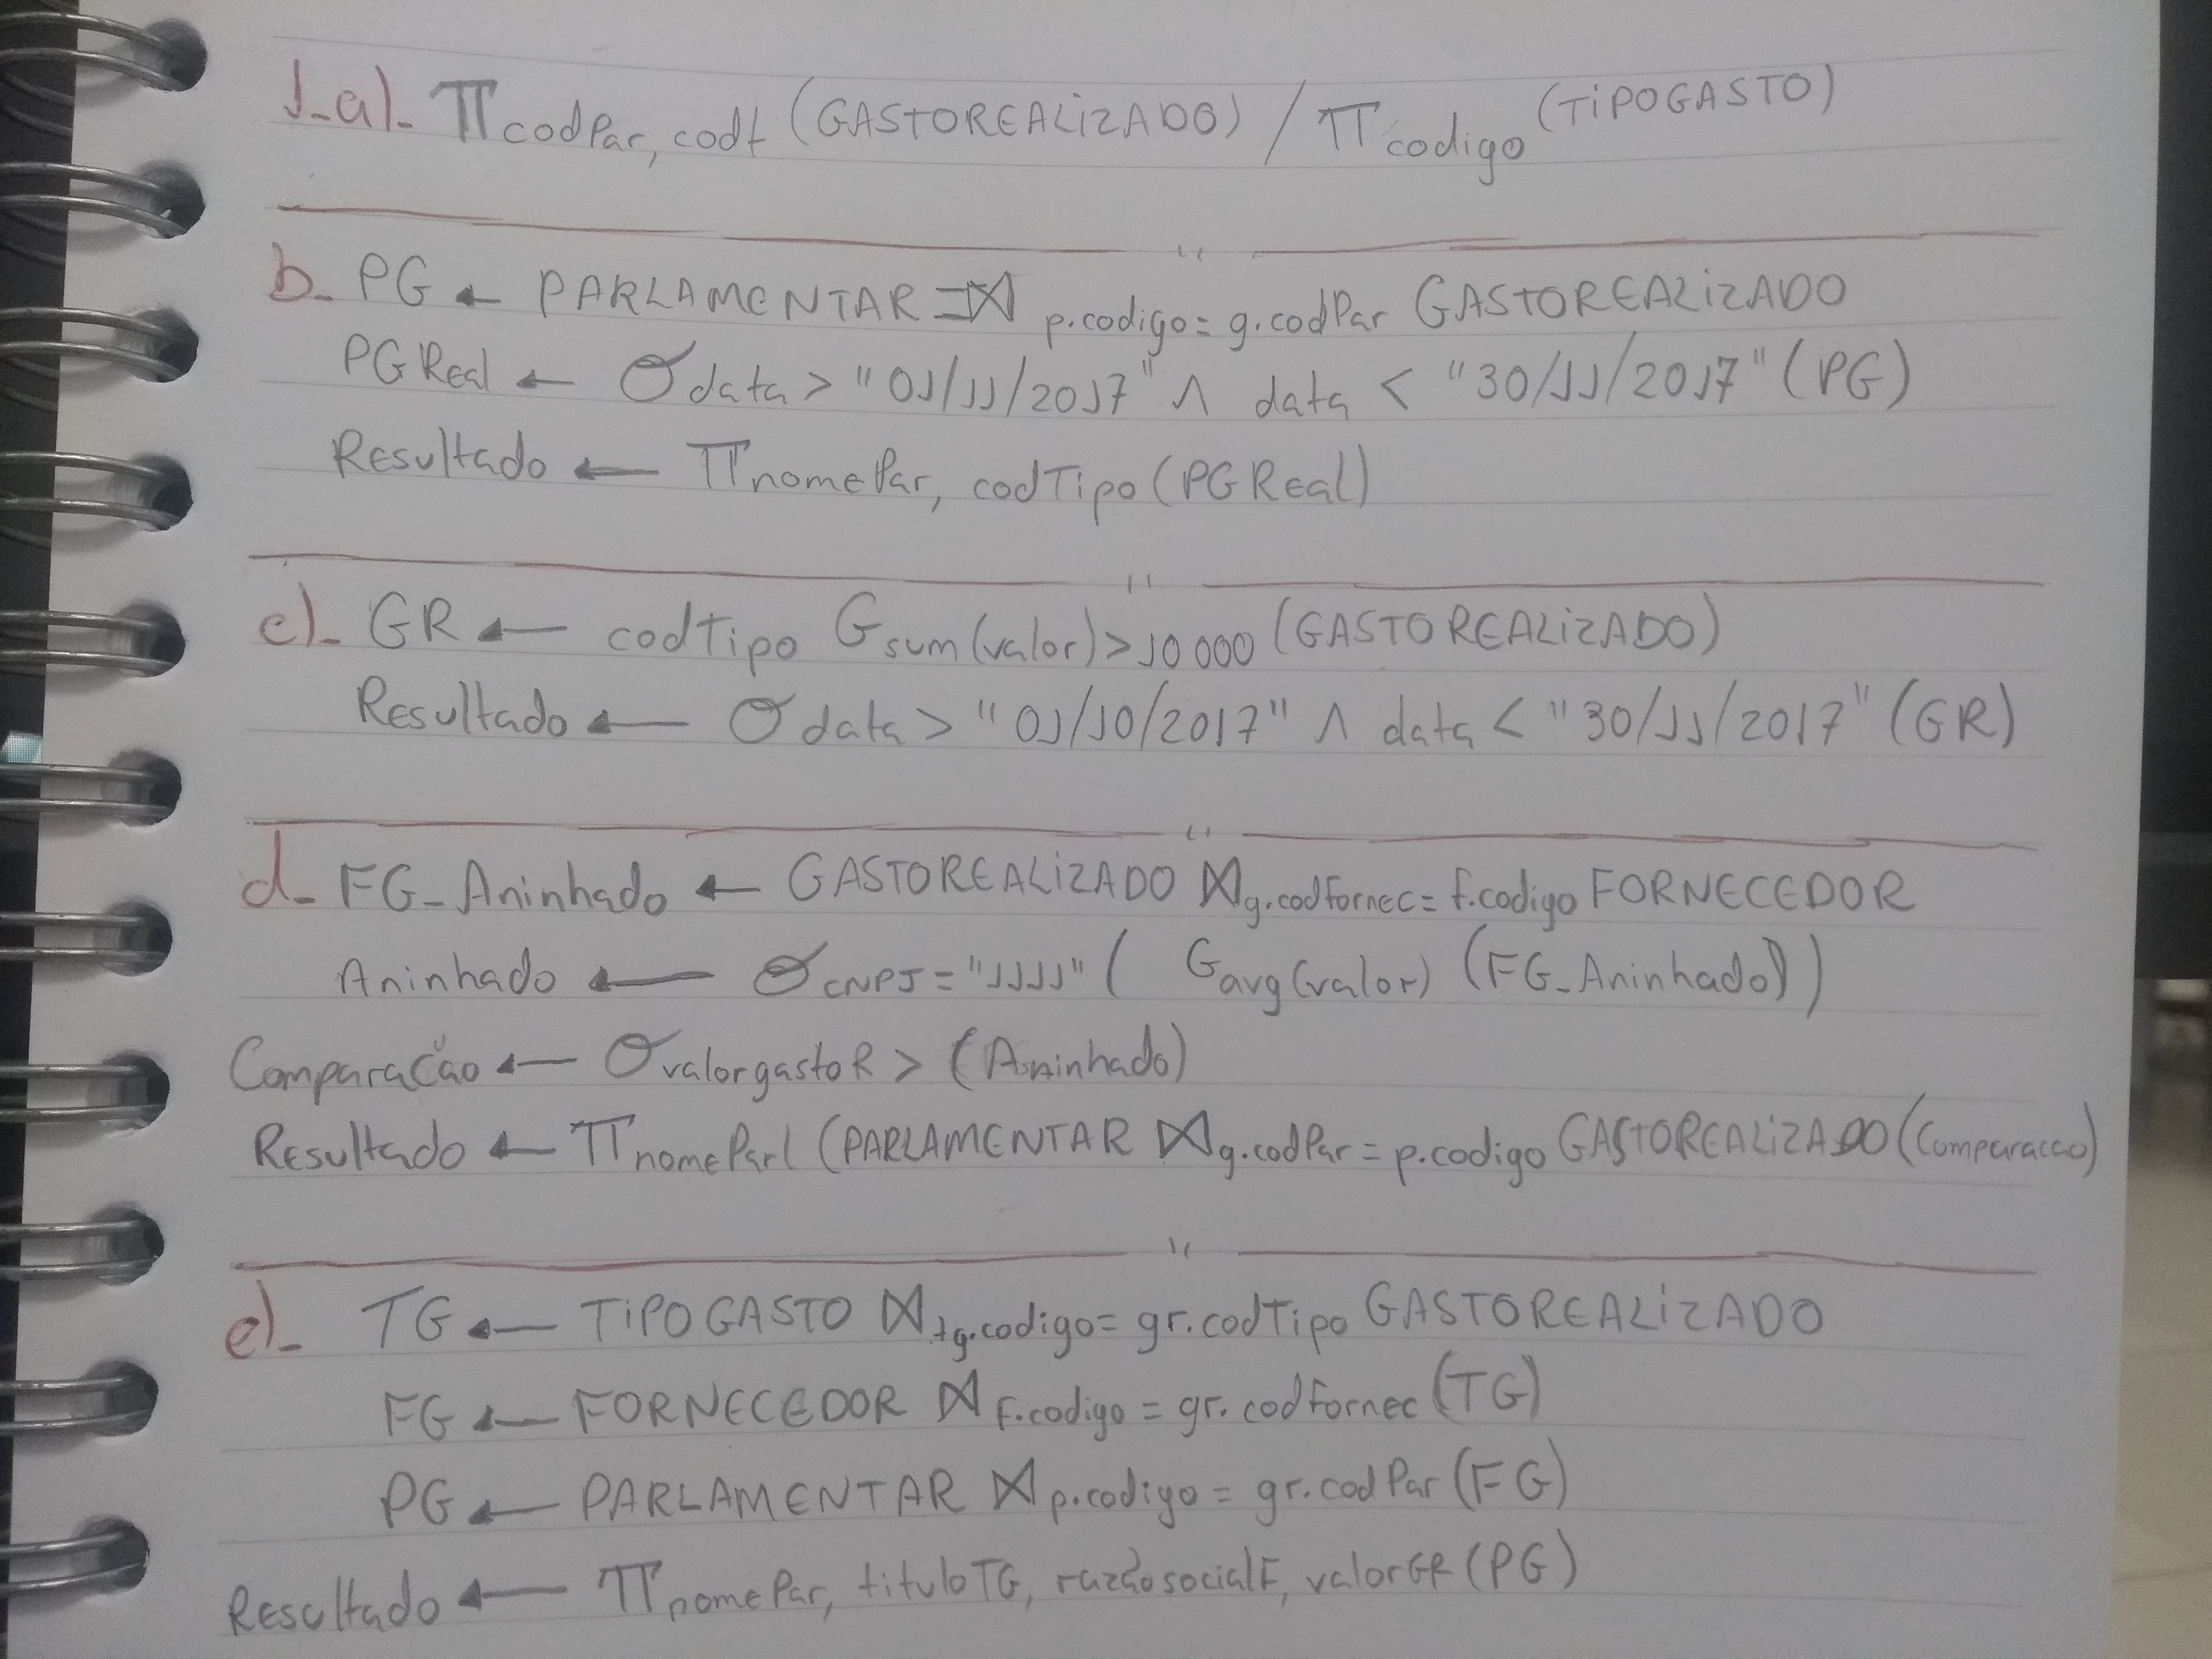 1-a)- π codPar, codt (GASTOREALiZADO) / π codigo (TiPOGASTO)
b- PG ← PARLAMENTAR ⟕ p.codigo = g.codPar GASTOREALiZADO
PGReal ← σ data > "01/11/2017" ∧ data < "30/11/2017" (PG)
Resultado ← π nomePar, codTipo (PGReal)
c)- GR ← codTipo G sum(valor) > 10 000 (GASTOREALiZADO)
Resultado ← σ data > "01/10/2017" ∧ data < "30/11/2017" (GR)
d- FG_Aninhado ← GASTOREALiZADO ⋈ g.codFornec = f.codigo FORNECEDOR
Aninhado ← σ CNPJ = "1111" ( G avg(valor) (FG_Aninhado))
Comparação ← σ valorgastoR > (Aninhado)
Resultado ← π nomeParl (PARLAMENTAR ⋈ g.codPar = p.codigo GASTOREALiZADO (Comparacao)
e)- TG ← TiPOGASTO ⋈ tg.codigo = gr.codTipo GASTOREALiZADO
FG ← FORNECEDOR ⋈ F.codigo = gr.codFornec (TG)
PG ← PARLAMENTAR ⋈ p.codigo = gr.codPar (FG)
Resultado ← π nomePar, tituloTG, razãosocialF, valorGR (PG)